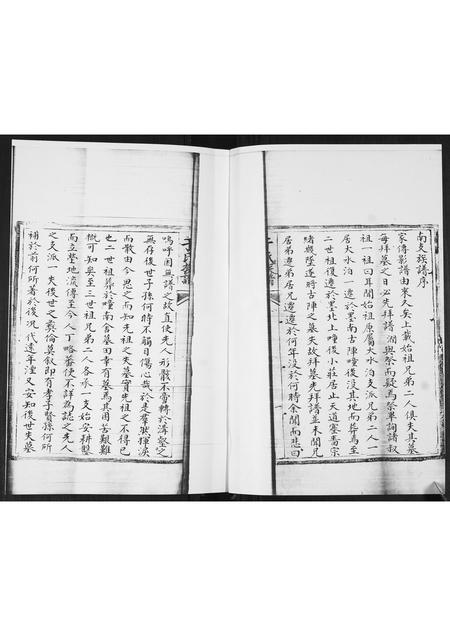 南支族譜序
家傳影譜由來久矣上載始祖兄弟二人俱失其墓
每拜墓之日必先拜譜洇與祭而疑焉祭畢詢諸叔
祖一祖曰耳聞始祖原屬大水泊支派兄弟二人一
居大水泊一遷於墨南古陣瞳後沒其地而葬焉至
二世祖復遷於墨北上疃後小莊居止天道塞嗇宗
緒興墜遂將古陣之墓失故拜墓先拜譜並未聞兄
居弟遷弟居兄遷遷於何年沒於何時余聞而悲曰
嗚呼因無譜之故直使先人形骸不啻轉於溝壑之
無存後世子孫何時不觸目傷心哉於是羣然揮淚
而散由今思之而知先祖之失墓實先祖之不得已
也二世祖葬於疃南舍墓田幸有墓焉其困苦艱難
概可知矣至三世祖兄弟二人各承一支始安耕鑿
而立塋地流傳至今人丁略蕃使不詳為誌之先人
之支派一失後世之彝倫莫叙即有孝子賢孫何所
補於前何所著於後况代遠年湮又安知後世失墓